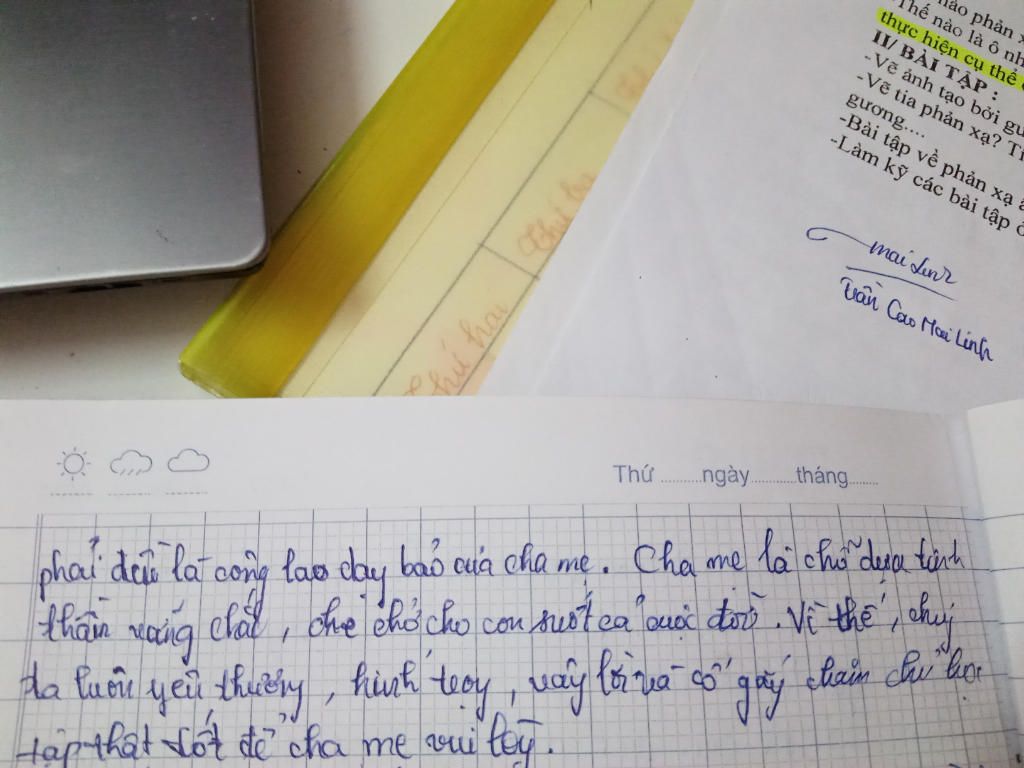 nào phản x
-Thế nào là ô nh
thực hiện cụ thể
II/ BÀI TẬP :
-Vẽ ảnh tạo bởi gư
-Vẽ tia phản xạ? Tì
gương....
-Bài tập về phản xạ â
-Làm kỹ các bài tập ở
Mai Linh
Trần Cao Mai Linh
Thứ ba
Thứ hai
Thứ ngày tháng
phải đều là công lao dạy bảo của cha mẹ. Cha mẹ là chỗ dựa tinh
thần vững chắc, che chở cho con suốt cả cuộc đời. Vì thế, chúng
ta luôn yêu thương, kính trọng, vâng lời và cố gắng chăm chỉ học
tập thật tốt để cha mẹ vui lòng.